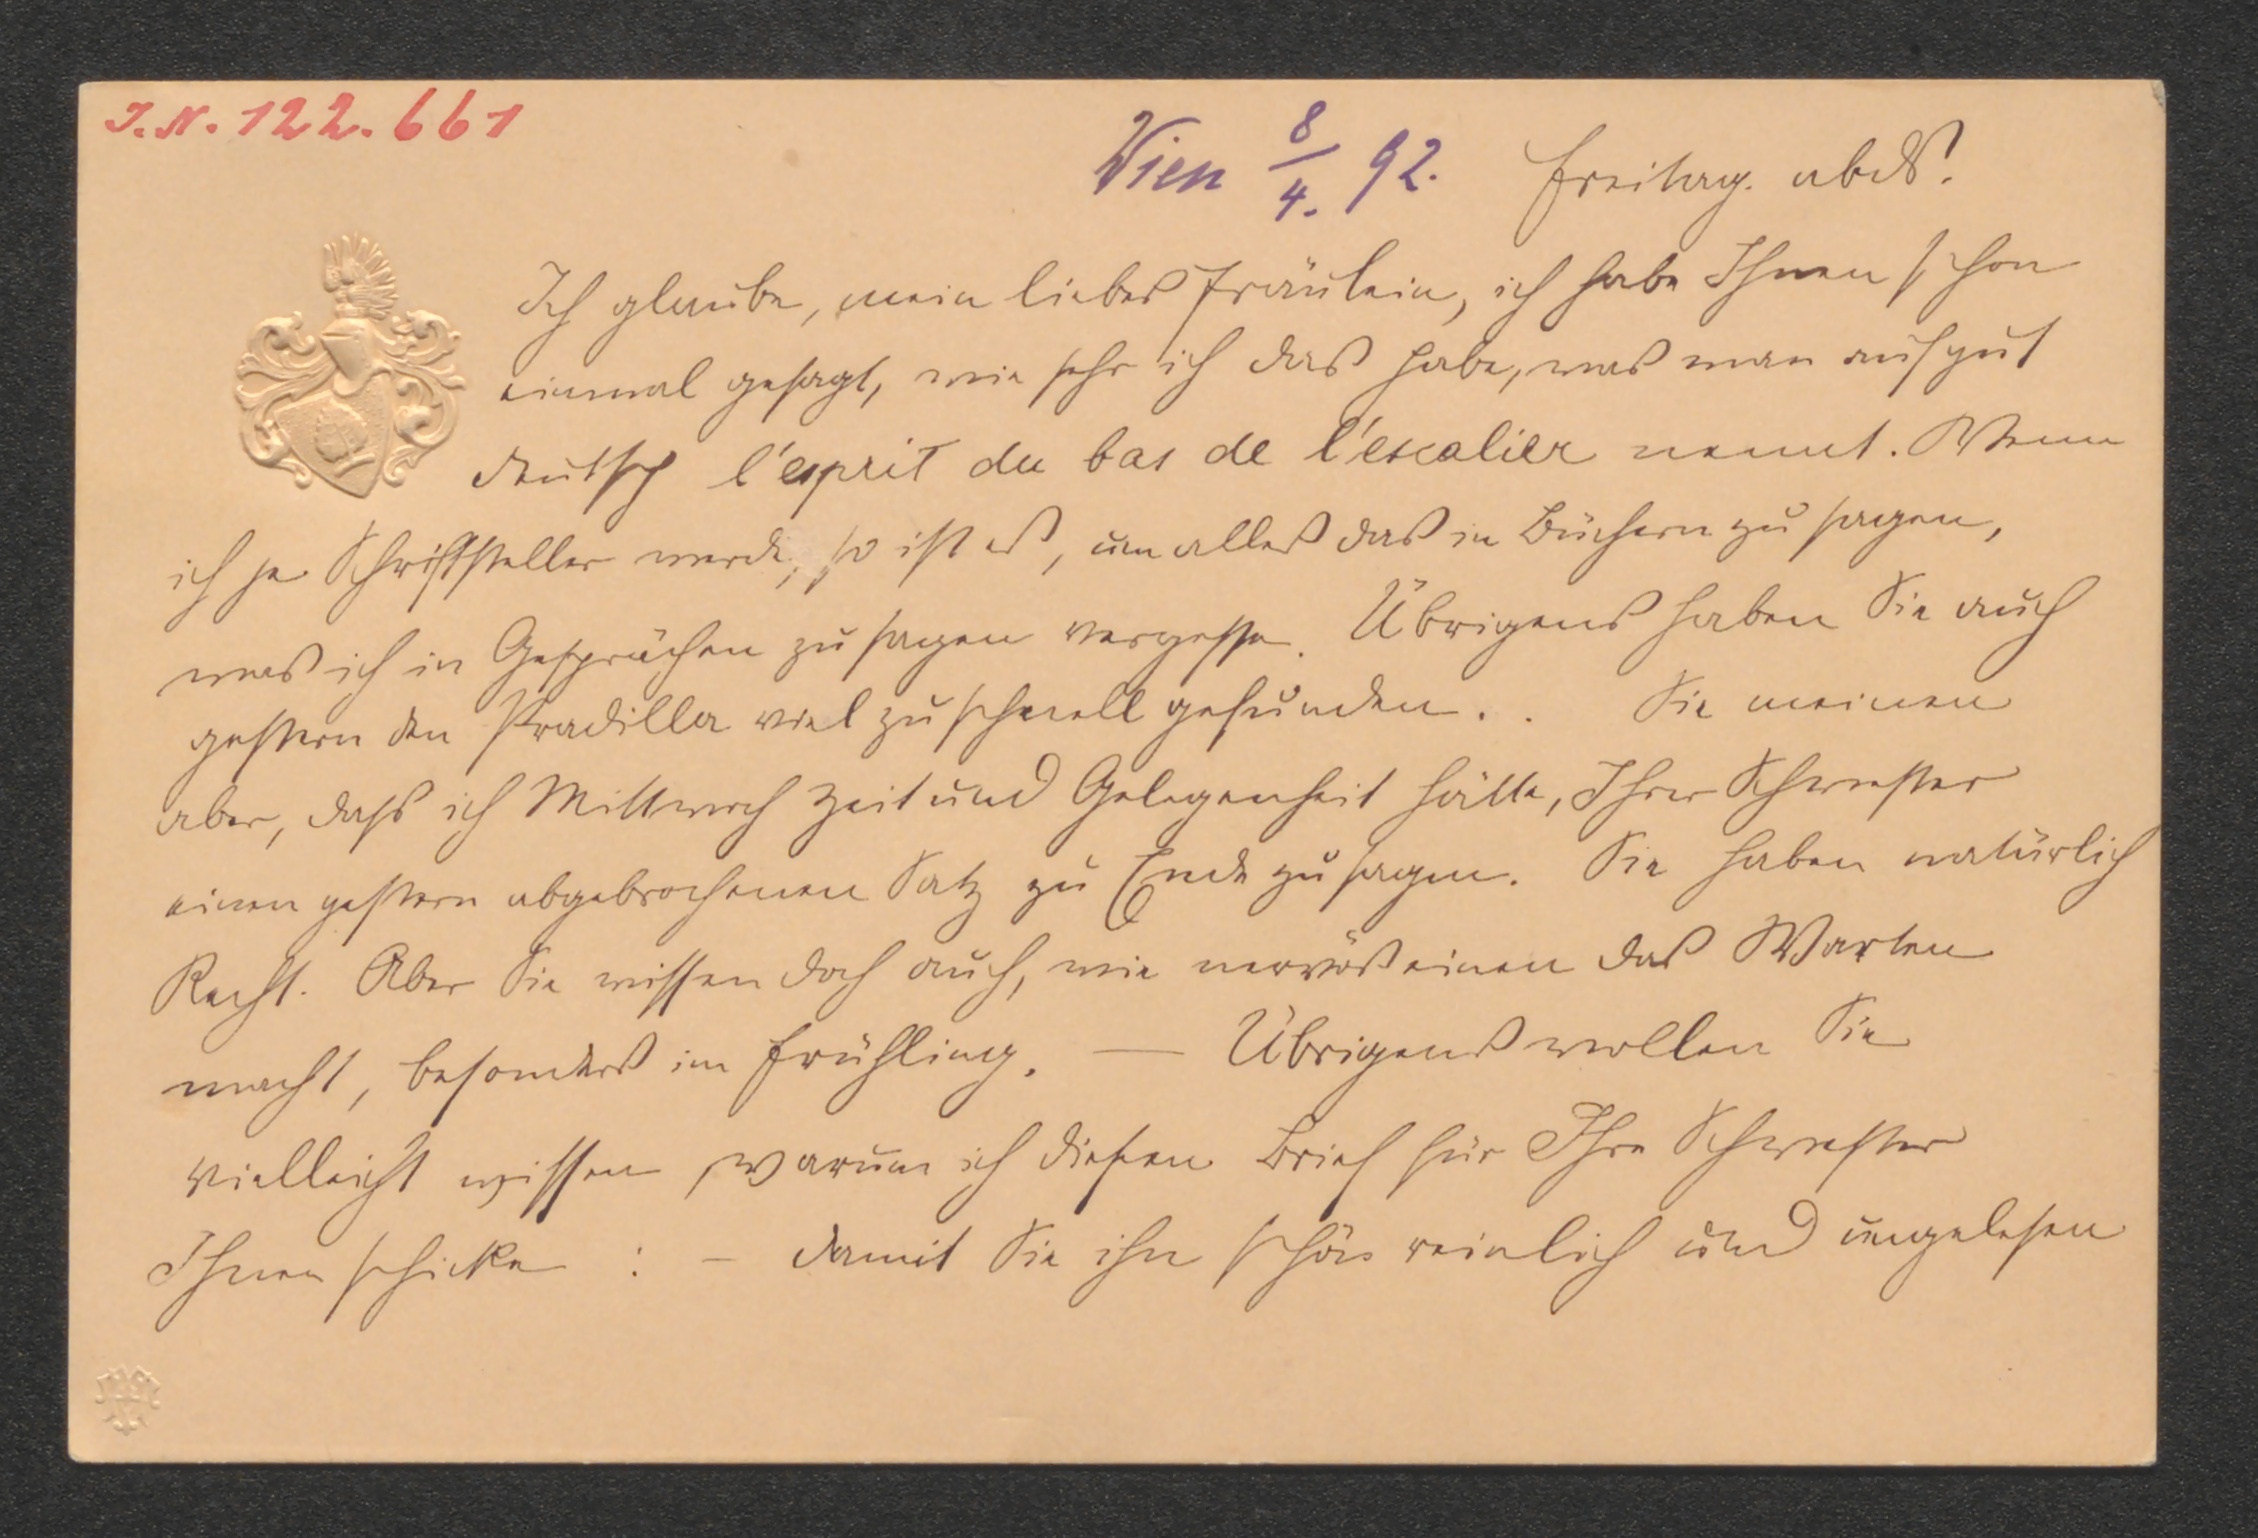 J. N. 122.661
Wien 8/4. 92. Freitag. abds.
Ich glaube, mein liebes Fräulein, ich habe Ihnen schon
einmal gesagt, wie sehr ich das habe, was man auf gut
deutsch l'esprit du bas de l'escalier nennt. Wenn
ich je Schriftsteller werde, so ist es, um alles das in Büchern zu sagen,
was ich in Gesprächen zu sagen vergesse. Übrigens haben Sie auch
gestern den Pradilla viel zu schnell gefunden. . Sie meinen
aber, dass ich Mittwoch Zeit und Gelegenheit hätte, Ihrer Schwester
einen gestern abgebrochenen Satz zu Ende zu sagen. Sie haben natürlich
Recht. Aber Sie wissen doch auch, wie nervös einen das Warten
macht, besonders im Frühling. — Übrigens wollen Sie
vielleicht wissen, warum ich diesen Brief für Ihre Schwester
Ihnen schicke : – damit Sie ihn schön reinlich und ungelesen